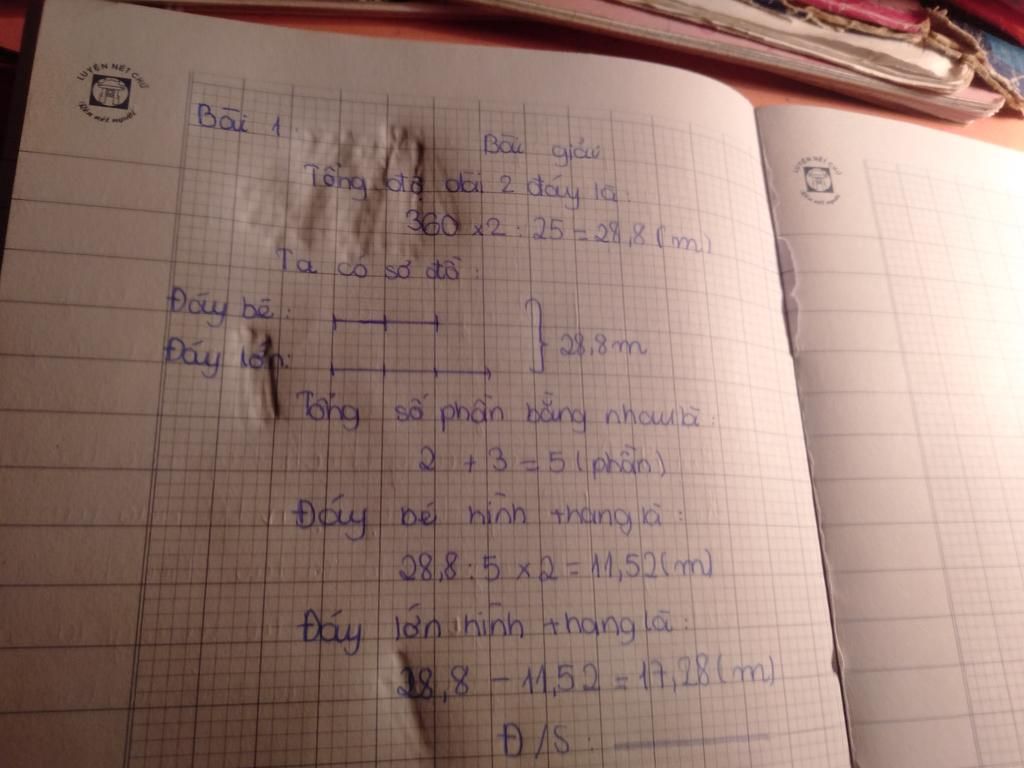 LUYỆN NÉT CHỮ
Bài 1.
Bài giải
Tổng độ dài 2 đáy là:
360 x 2 : 25 = 28,8 (m)
Ta có sơ đồ:
Đáy bé:
Đáy lớn:
28,8m
Tổng số phần bằng nhau là:
2 + 3 = 5 (phần)
Đáy bé hình thang là:
28,8 : 5 x 2 = 11,52 (m)
Đáy lớn hình thang là:
28,8 - 11,52 = 17,28 (m)
Đ/S:
LUYỆN NÉT CHỮ